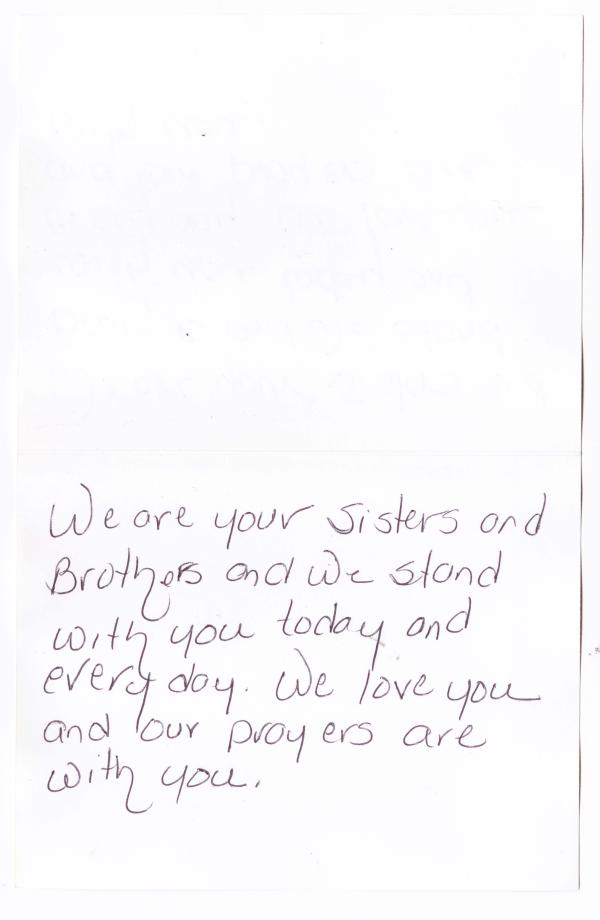 We are your Sisters and
Brothers and we stand
with you today and
every day. We love you
and our prayers are
with you.